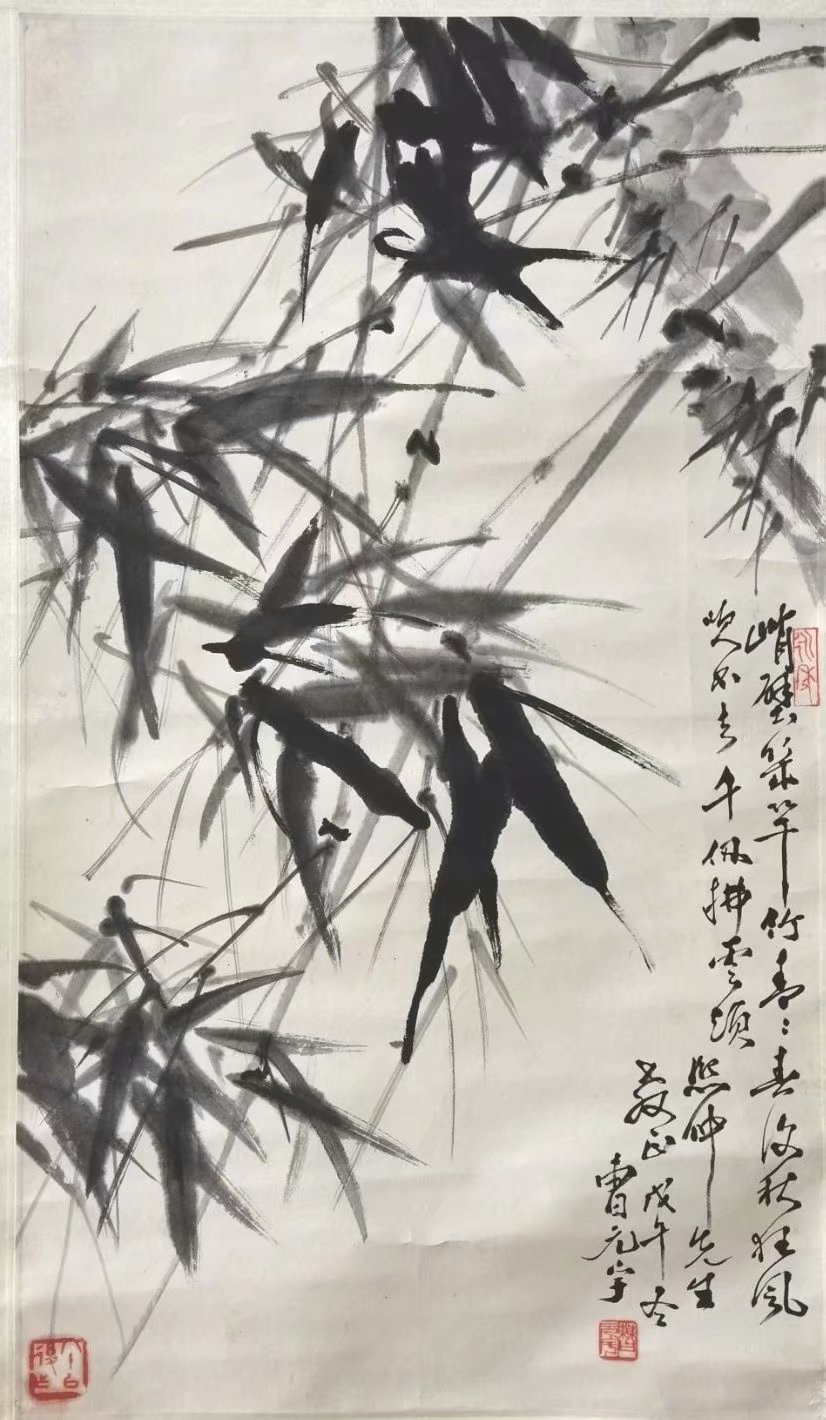 峭壁竿竹青々春復秋狂風
吹不去千仞拂雲頭
熙仲先生
教正戊午冬
曹元宇